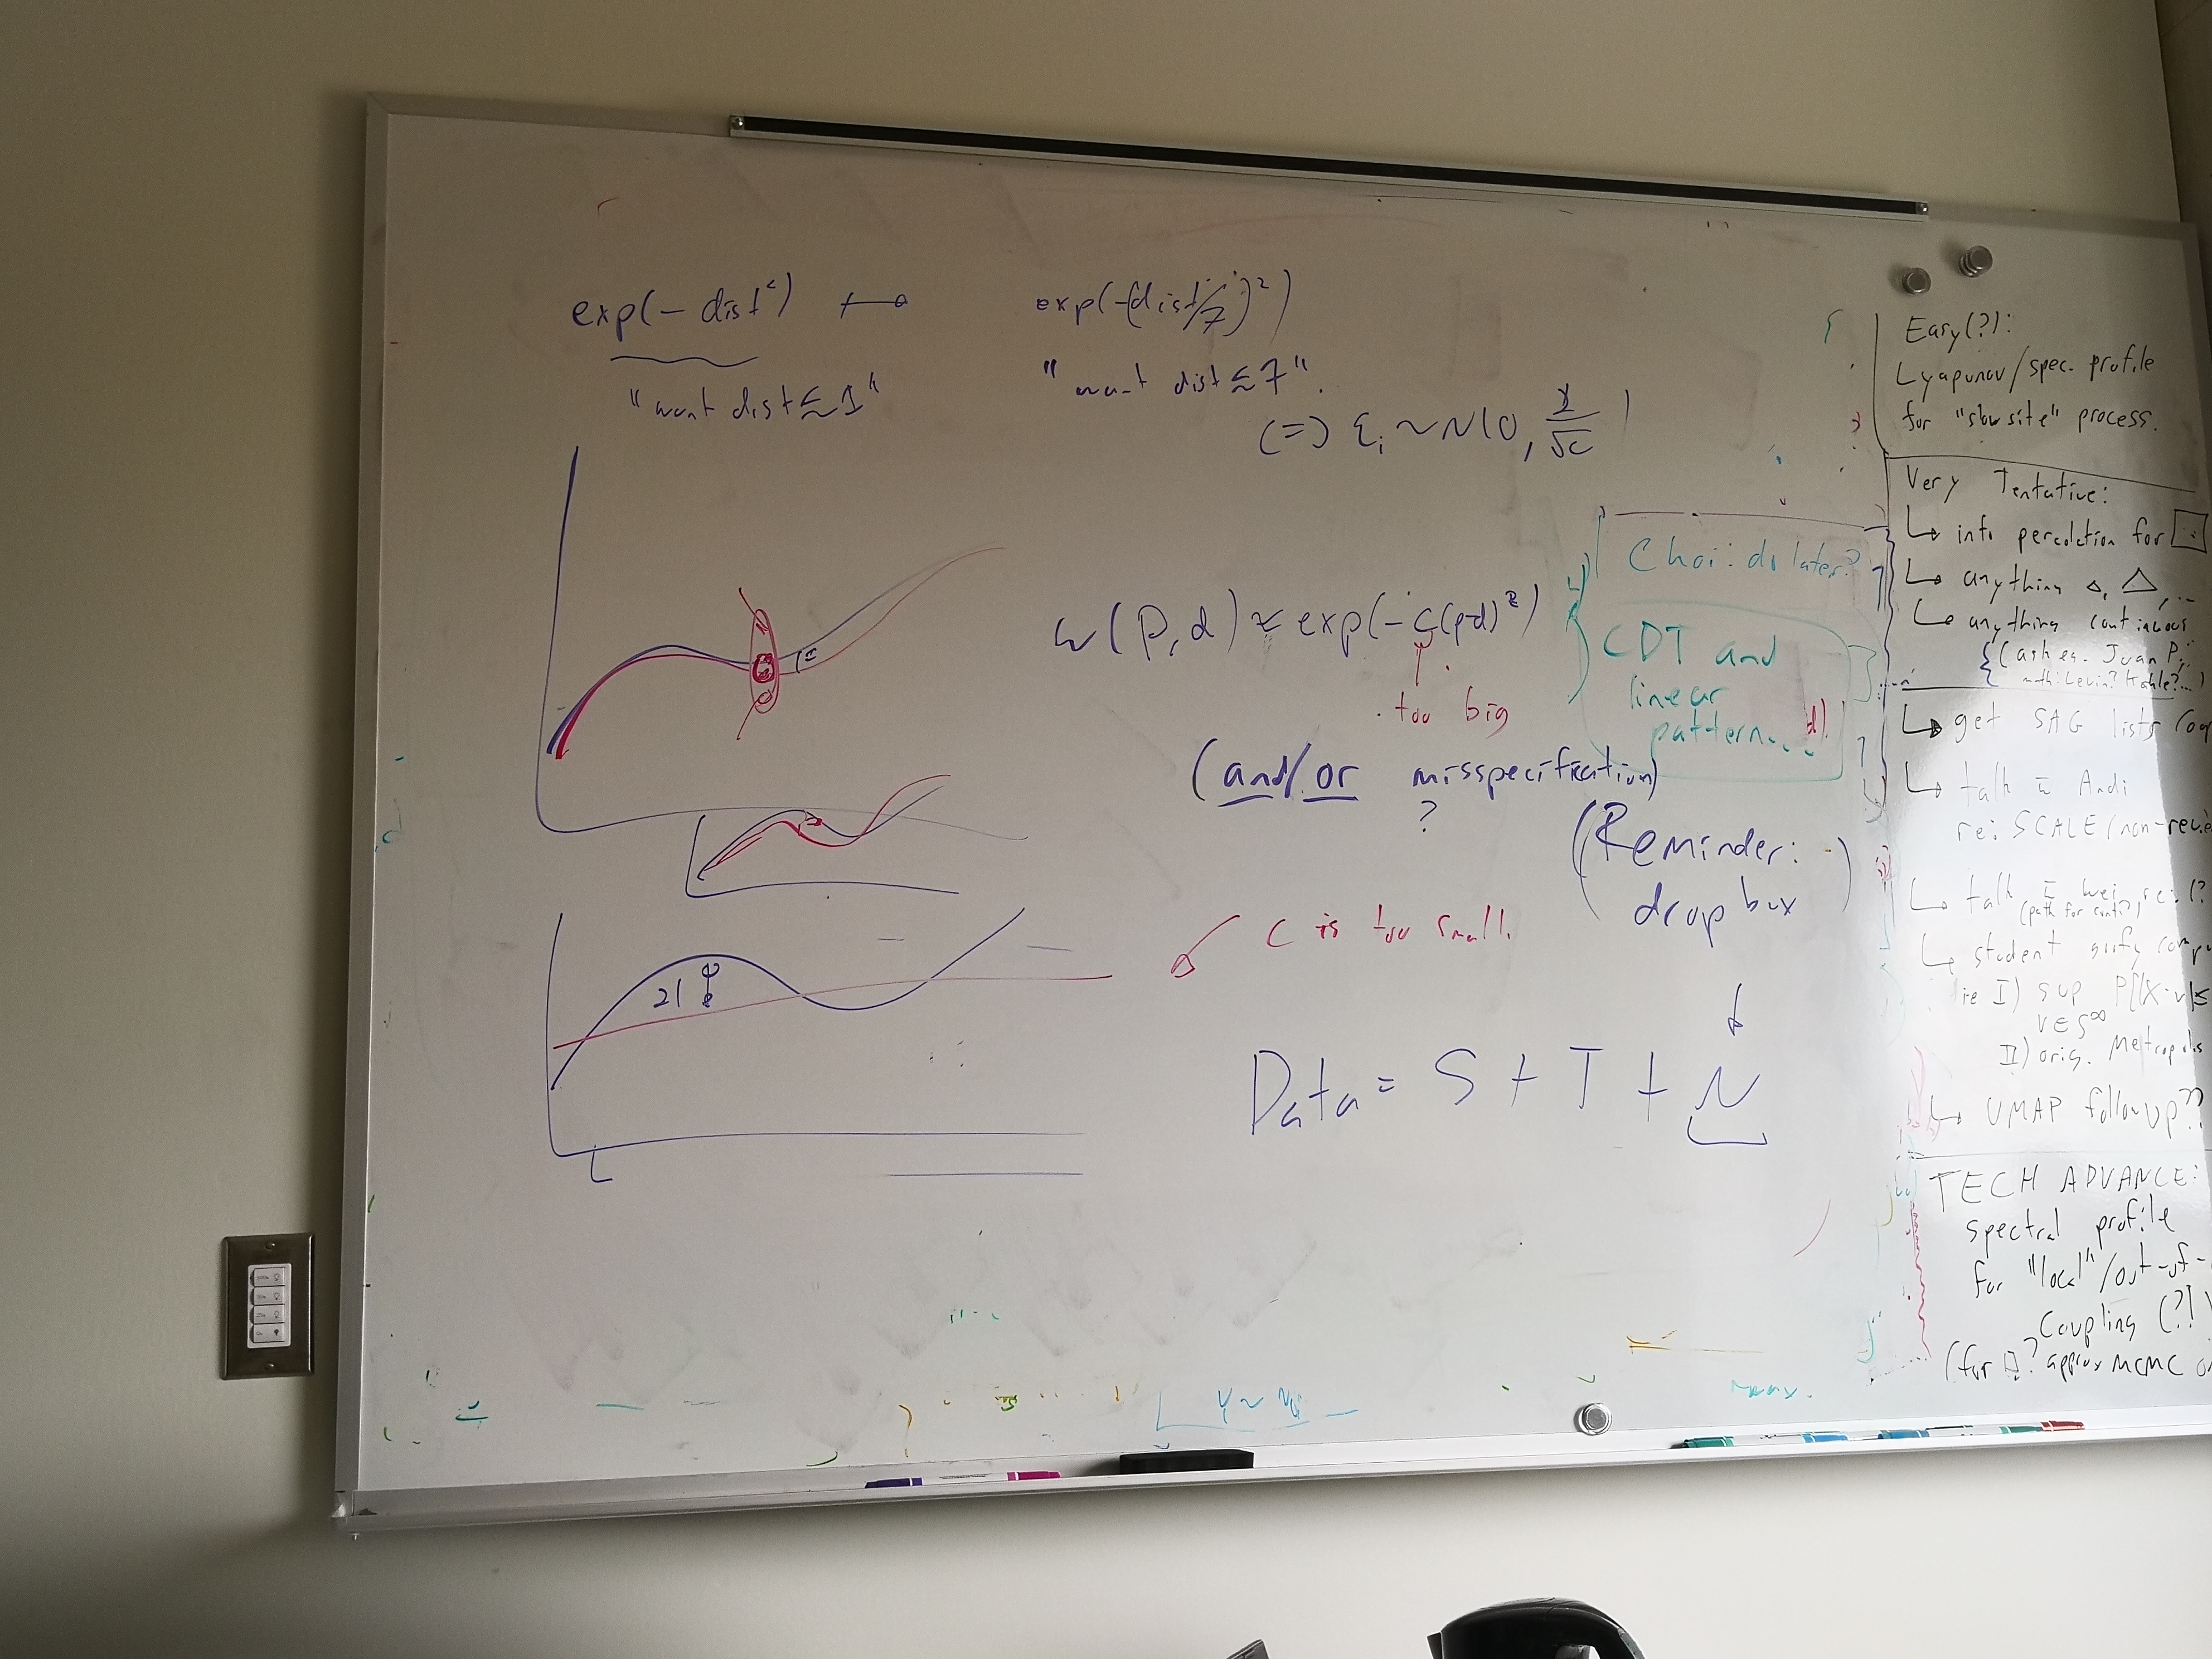 exp(- dist²) ↦ exp(-(dist/7)²)
"want dist ≲ 1" "want dist ≲ 7".
(=) ε_i ~ N(0, 1/√c)
w(p,d) ≈ exp(-c(p-d)²)
too big
(and/or misspecification)
?
(Reminder:
drop box
c is too small.
21
Data = S + T + N
Choi: do later?
CDT and
linear
pattern...
d).
Easy(?):
Lyapunov/spec. profile
for "slow site" process.
Very Tentative:
↳ info percolation for
↳ anything △, △, ...
↳ anything continuous
(ask eg. Juan P.
↳ get SAG lists
↳ talk Andi
re: SCALE/non-
↳ talk
↳ student
ie I) sup P[|X·v|≤
v∈S^∞
II) orig. Metropolis
↳ UMAP followup??
TECH ADVANCE:
spectral profile
for "local"/out-of-
Coupling (?!)
(for ? approx MCMC